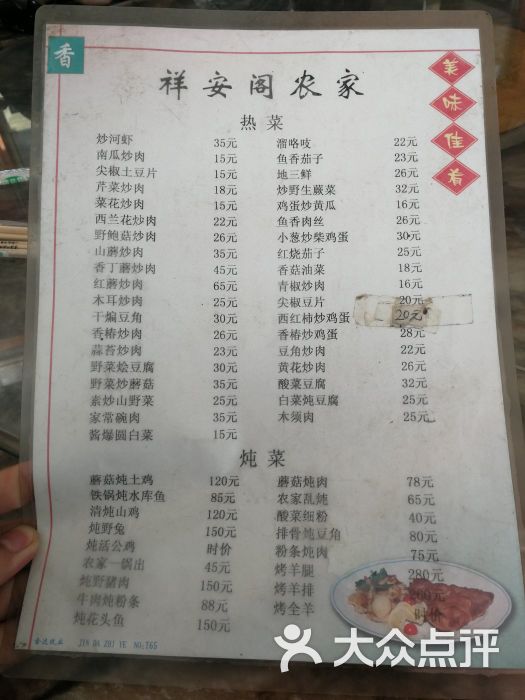 香
祥安阁农家
美味佳肴
热菜
炒河虾 35元
南瓜炒肉 15元
尖椒土豆片 15元
芹菜炒肉 18元
菜花炒肉 15元
西兰花炒肉 22元
野鲍菇炒肉 26元
山蘑炒肉 35元
香丁蘑炒肉 45元
红蘑炒肉 65元
木耳炒肉 25元
干煸豆角 30元
香椿炒肉 26元
蒜苔炒肉 23元
野菜烩豆腐 30元
野菜炒蘑菇 35元
素炒山野菜 25元
家常碗肉 35元
酱爆圆白菜 15元
溜咯吱 22元
鱼香茄子 23元
地三鲜 26元
炒野生蕨菜 32元
鸡蛋炒黄瓜 16元
鱼香肉丝 26元
小葱炒柴鸡蛋 30元
红烧茄子 23元
香菇油菜 18元
青椒炒肉 16元
尖椒豆片 20元
西红柿炒鸡蛋 20元
香椿炒鸡蛋 28元
豆角炒肉 22元
黄花炒肉 26元
酸菜豆腐 32元
白菜炖豆腐 25元
木须肉 25元
炖菜
蘑菇炖土鸡 120元
铁锅炖水库鱼 85元
清炖山鸡 120元
炖野兔 150元
炖活公鸡 时价
农家一锅出 45元
炖野猪肉 150元
牛肉炖粉条 88元
炖花头鱼 150元
蘑菇炖肉 78元
农家乱炖 65元
酸菜细粉 40元
排骨炖豆角 80元
粉条炖肉 75元
烤羊腿 280元
烤羊排 260元
烤全羊 时价
金达纸业 JIN DA ZHI YE NO:T65
大众点评